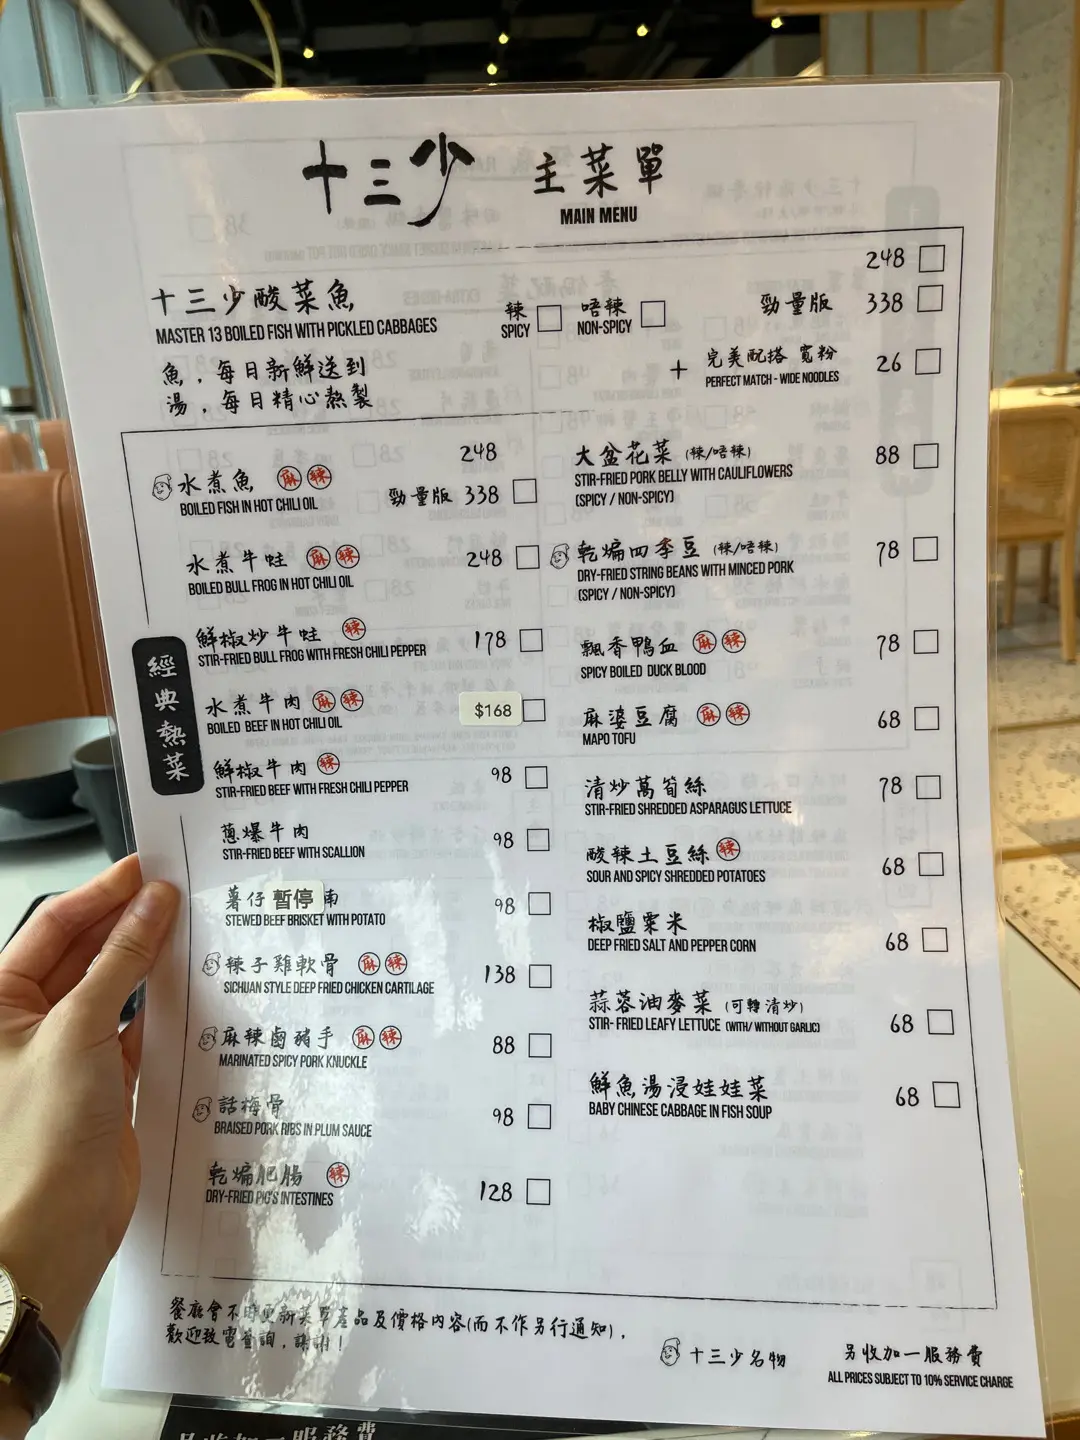 十三少 主菜單
MAIN MENU
十三少酸菜魚
MASTER 13 BOILED FISH WITH PICKLED CABBAGES
辣
SPICY
唔辣
NON-SPICY
248
勁量版 338
+ 完美配搭 寬粉 26
PERFECT MATCH - WIDE NOODLES
魚，每日新鮮送到
湯，每日精心熬製
經典熱菜
248
水煮魚 麻 辣
BOILED FISH IN HOT CHILI OIL
勁量版 338
水煮牛蛙 麻 辣 248
BOILED BULL FROG IN HOT CHILI OIL
鮮椒炒牛蛙 辣 178
STIR-FRIED BULL FROG WITH FRESH CHILI PEPPER
水煮牛肉 麻 辣 $168
BOILED BEEF IN HOT CHILI OIL
鮮椒牛肉 辣 98
STIR-FRIED BEEF WITH FRESH CHILI PEPPER
蔥爆牛肉 98
STIR-FRIED BEEF WITH SCALLION
薯仔 暫停 98
STEWED BEEF BRISKET WITH POTATO
辣子雞軟骨 麻 辣 138
SICHUAN STYLE DEEP FRIED CHICKEN CARTILAGE
麻辣鹵豬手 麻 辣 88
MARINATED SPICY PORK KNUCKLE
話梅骨 98
BRAISED PORK RIBS IN PLUM SAUCE
乾煸肥腸 辣 128
DRY-FRIED PIG'S INTESTINES
大盆花菜 (辣/唔辣) 88
STIR-FRIED PORK BELLY WITH CAULIFLOWERS
(SPICY / NON-SPICY)
乾煸四季豆 (辣/唔辣) 78
DRY-FRIED STRING BEANS WITH MINCED PORK
(SPICY / NON-SPICY)
飄香鴨血 麻 辣 78
SPICY BOILED DUCK BLOOD
麻婆豆腐 麻 辣 68
MAPO TOFU
清炒萵筍絲 78
STIR-FRIED SHREDDED ASPARAGUS LETTUCE
酸辣土豆絲 辣 68
SOUR AND SPICY SHREDDED POTATOES
椒鹽粟米 68
DEEP FRIED SALT AND PEPPER CORN
蒜蓉油麥菜 (可轉清炒) 68
STIR- FRIED LEAFY LETTUCE (WITH/ WITHOUT GARLIC)
鮮魚湯浸娃娃菜 68
BABY CHINESE CABBAGE IN FISH SOUP
餐廳會不時更新菜單產品及價格內容(而不作另行通知)，
歡迎致電查詢，謝謝！
十三少名物
另收加一服務費
ALL PRICES SUBJECT TO 10% SERVICE CHARGE